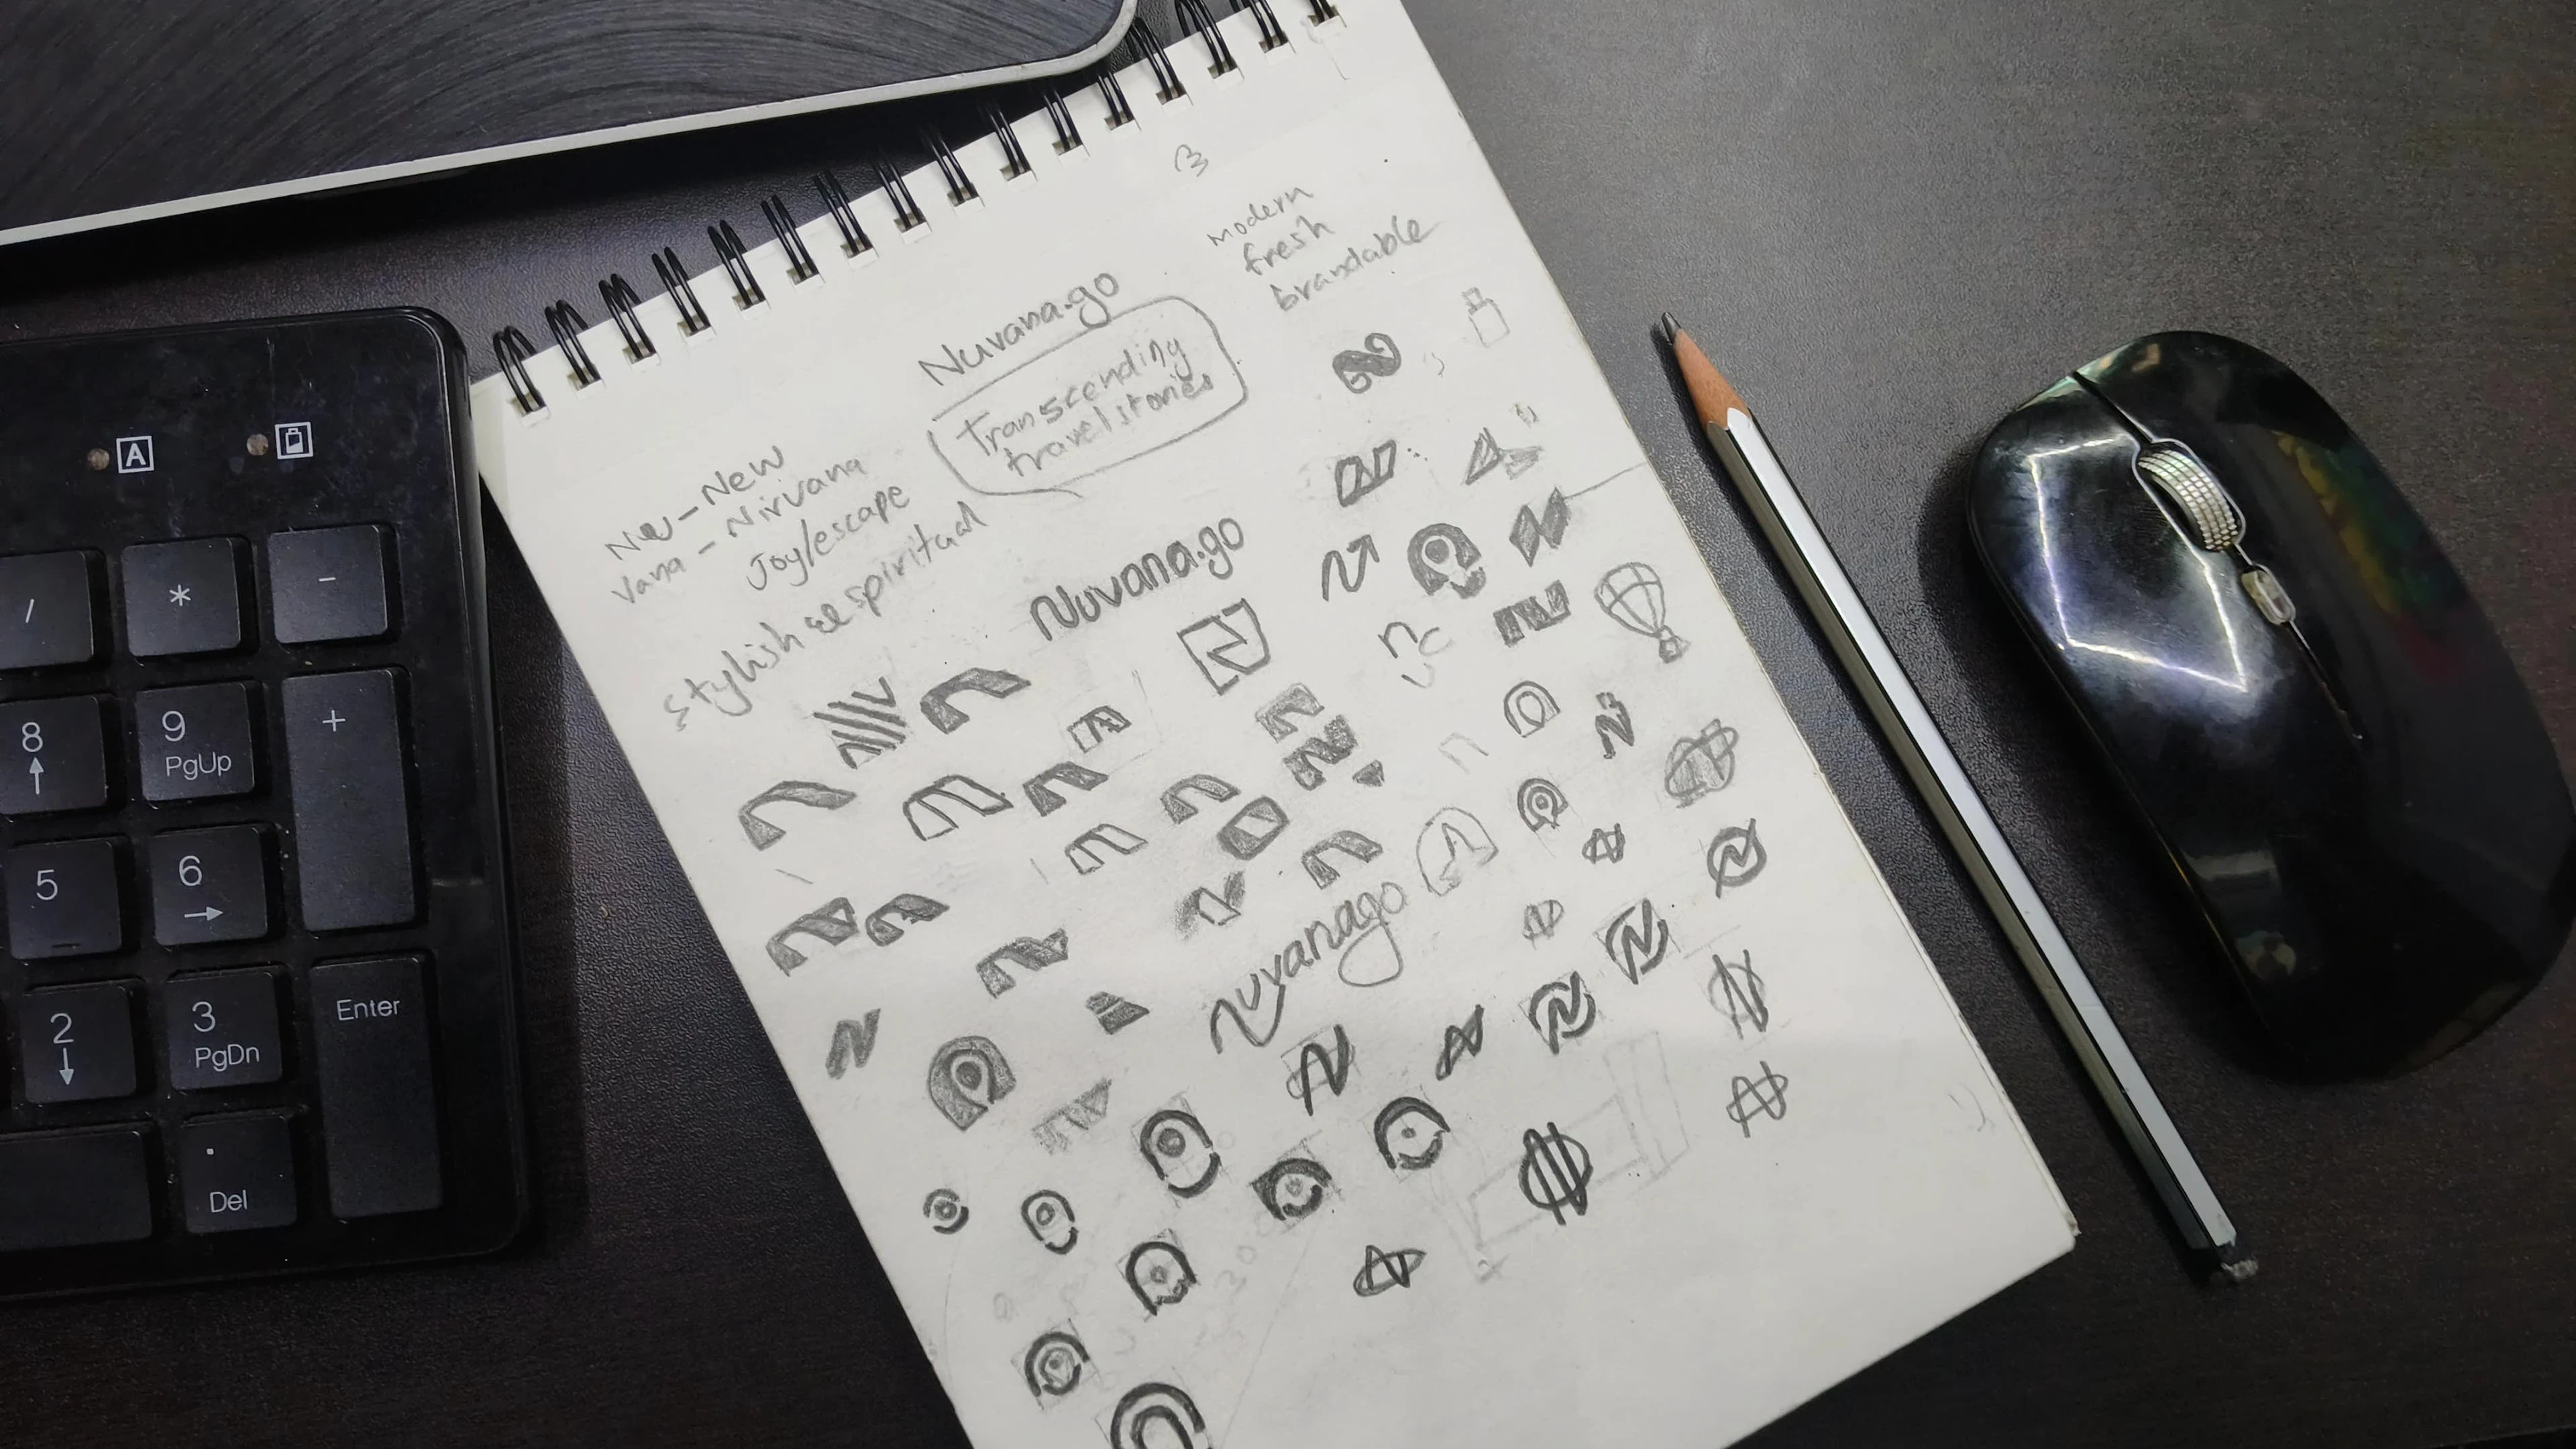 Modern
fresh
brandable
Nuvana.go
Transcending
travel stories
Nu - New
Vana - Nirvana
Joy/escape
stylish spiritual
Nuvana.go
nuvanago
A
/
*
-
8
9
PgUp
+
5
6
2
3
PgDn
Enter
.
Del